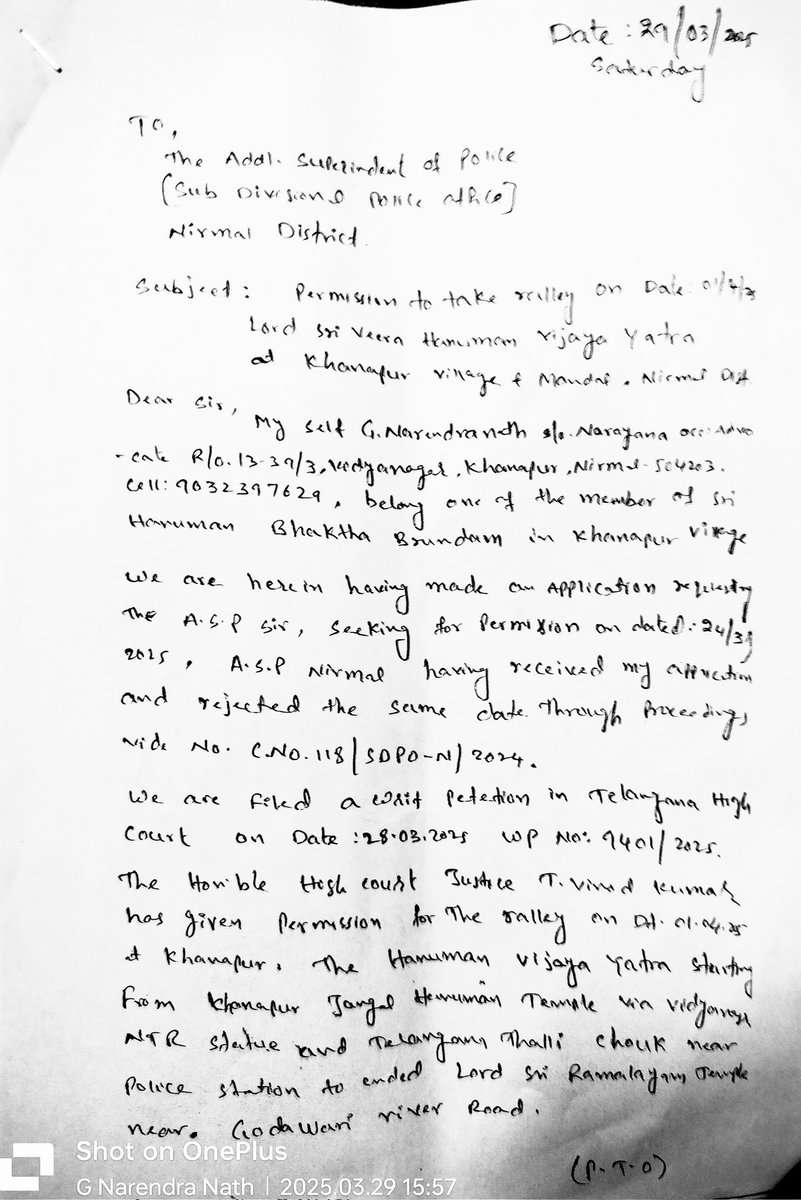 Date: 29/03/2025
Saturday
To,
The Addl. Superindent of Police
(Sub Divisional Police office)
Nirmal District.
Subject: Permission to take ralley on Date: 01/4/25
Lord Sri Veera Hanuman Vijaya Yatra
at Khanapur village & Mandal. Nirmal Dist
Dear Sir,
My self G. Narendranath s/o. Narayana occ: Advo
-cate R/o. 13-39/3, Vidyanagar, Khanapur, Nirmal-504203.
Cell: 9032397629, belong one of the member of Sri
Hanuman Bhaktha Brundam in Khanapur Village
We are herein having made an Application requesting
The A.S.P Sir, seeking for permission on dated: 24/3/
2025, A.S.P Nirmal having received my application
and rejected the same date. Through Proceedings
vide No. C.NO. 118/SDPO-N/2024.
We are filed a writ petetion in Telangana High
Court on Date: 28.03.2025 WP No: 9401/2025.
The Hon'ble High court Justice T. Vinod Kumar
has given permission for The ralley on Dt. 01.04.25
at Khanapur. The Hanuman Vijaya Yatra starting
from Khanapur Jangal Hanuman Temple via Vidyanagar
NTR Statue and Telangana Thalli Chouk near
Police station to ended Lord Sri Ramalayam Temple
near. Godawari river Road.
(P.T.O)
Shot on OnePlus
G Narendra Nath | 2025.03.29 15:57